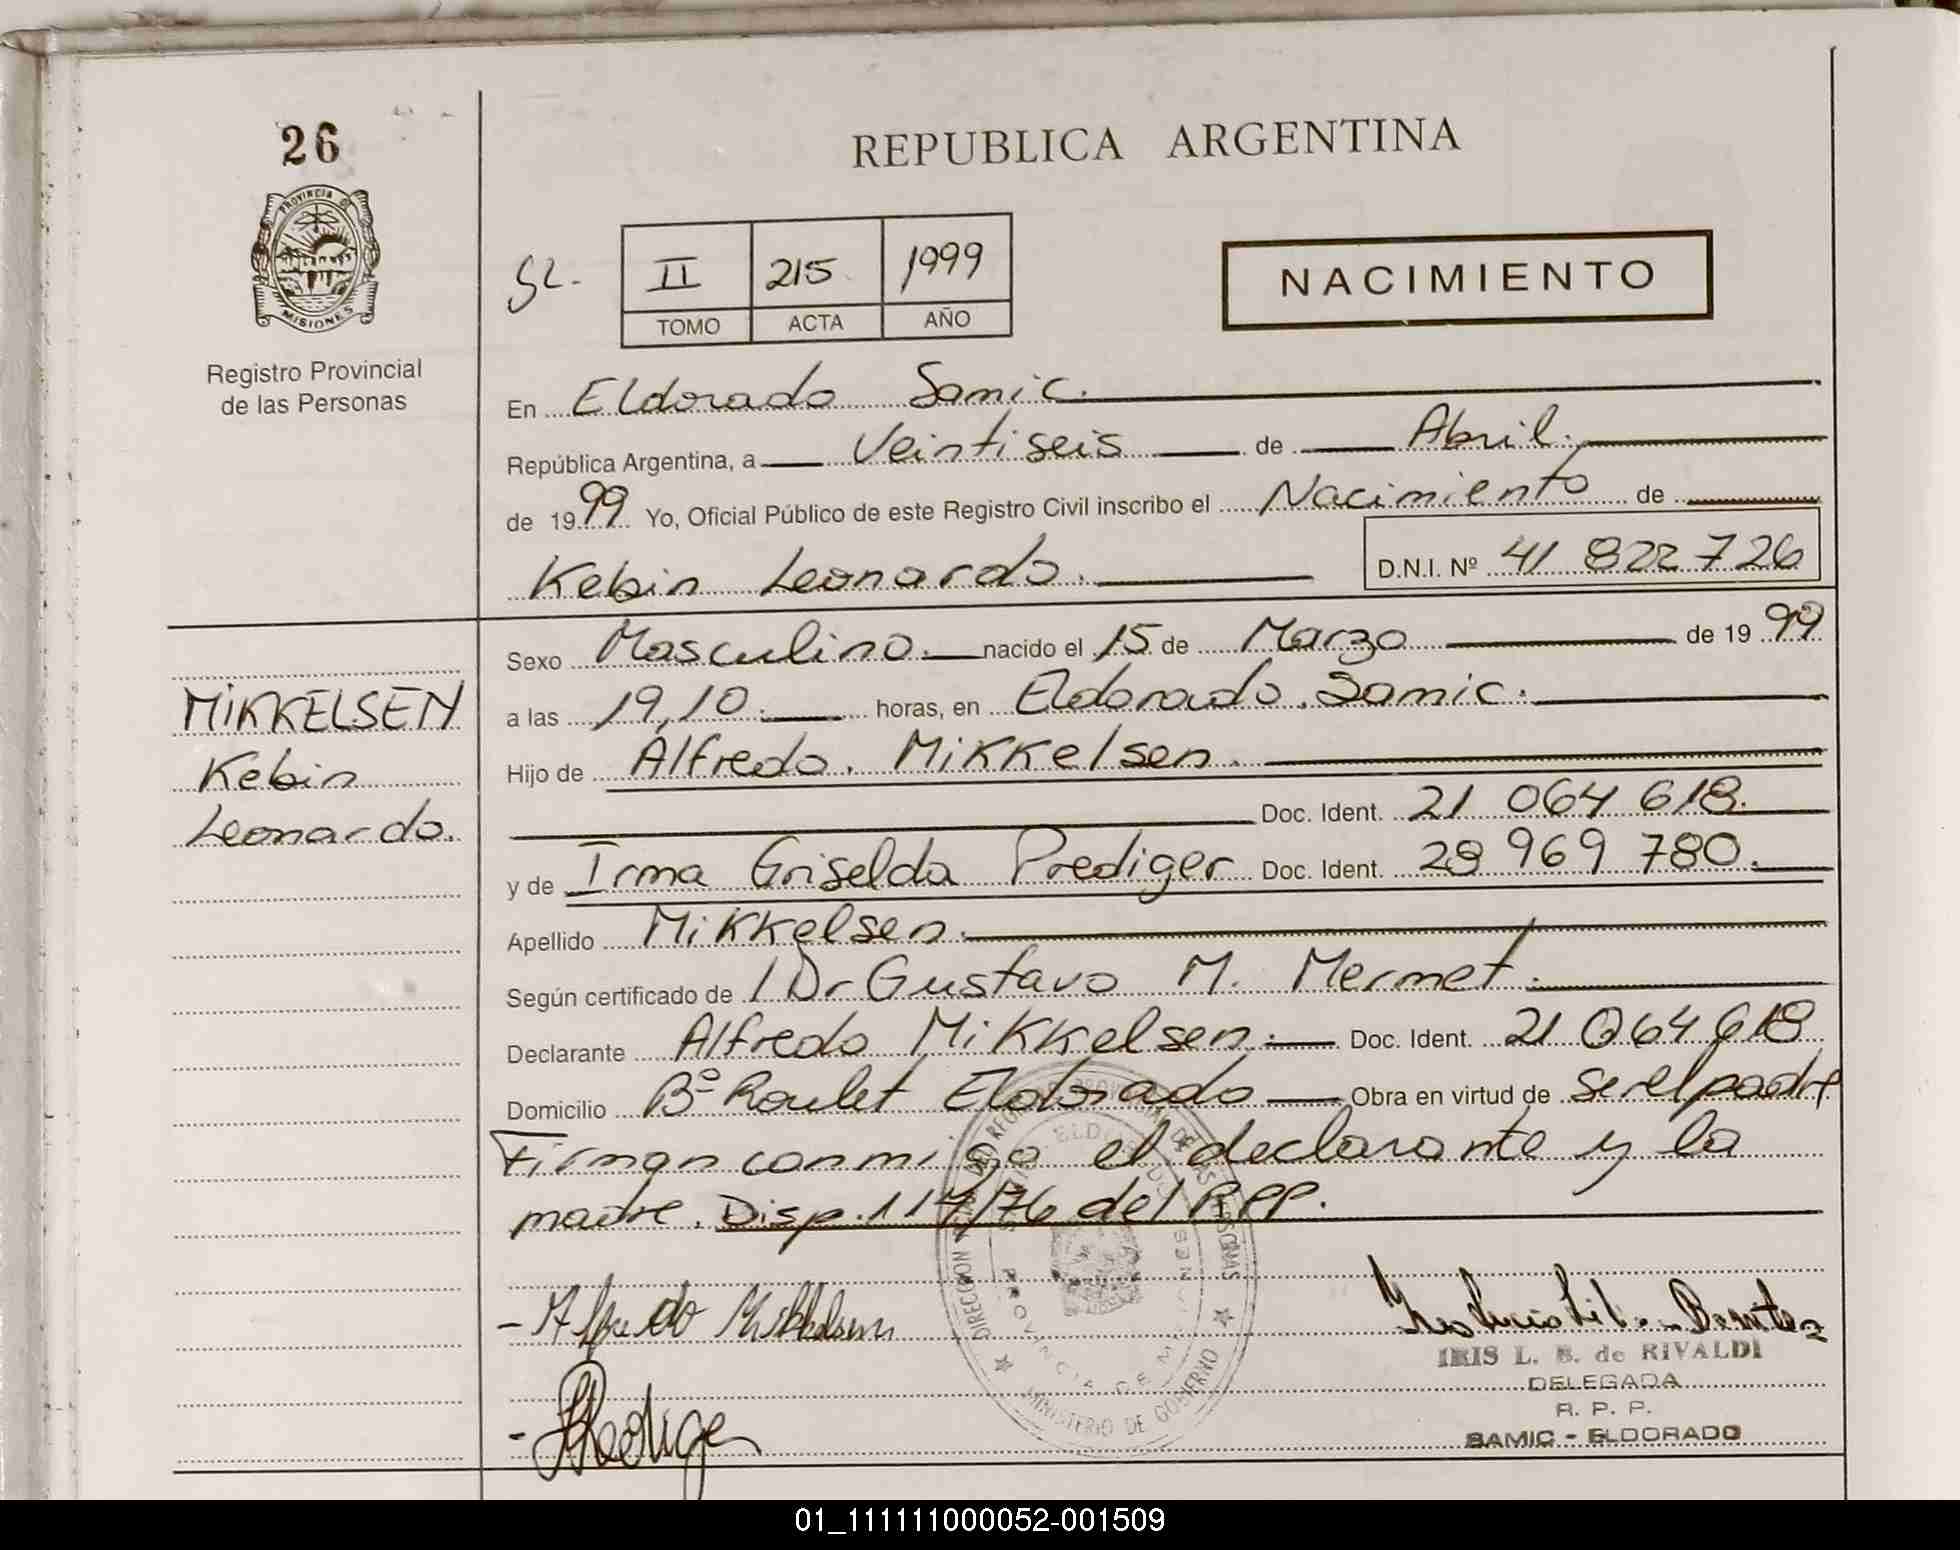 26
PROVINCIA DE
MISIONES
Registro Provincial
de las Personas
REPUBLICA ARGENTINA
SL.
II 215 1999
TOMO ACTA AÑO
NACIMIENTO
En Eldorado Samic.
República Argentina, a Veintiseis de Abril.
de 1999 Yo, Oficial Público de este Registro Civil inscribo el Nacimiento de
Kebin Leonardo. D.N.I. Nº 41 822 726
Sexo Masculino. nacido el 15 de Marzo de 1999
a las 19,10. horas, en Eldorado. Samic.
Hijo de Alfredo. Mikkelsen.
Doc. Ident. 21 064 618.
y de Irma Griselda Prediger Doc. Ident. 28 969 780.
Apellido Mikkelsen.
Según certificado de / Dr Gustavo M. Mermet.
Declarante Alfredo Mikkelsen. Doc. Ident. 21 064 618
Domicilio Bº Roulet Eldorado Obra en virtud de ser el padre
Firman conmigo el declarante y la
madre. Disp. 117/76 del RPP.
MIKKELSEN
Kebin
Leonardo.
- Alfredo Mikkelsen
IRIS L. B. de RIVALDI
DELEGADA
R. P. P.
SAMIC - ELDORADO
MINISTERIO DE GOBIERNO
PROVINCIA DE
01_111111000052-001509